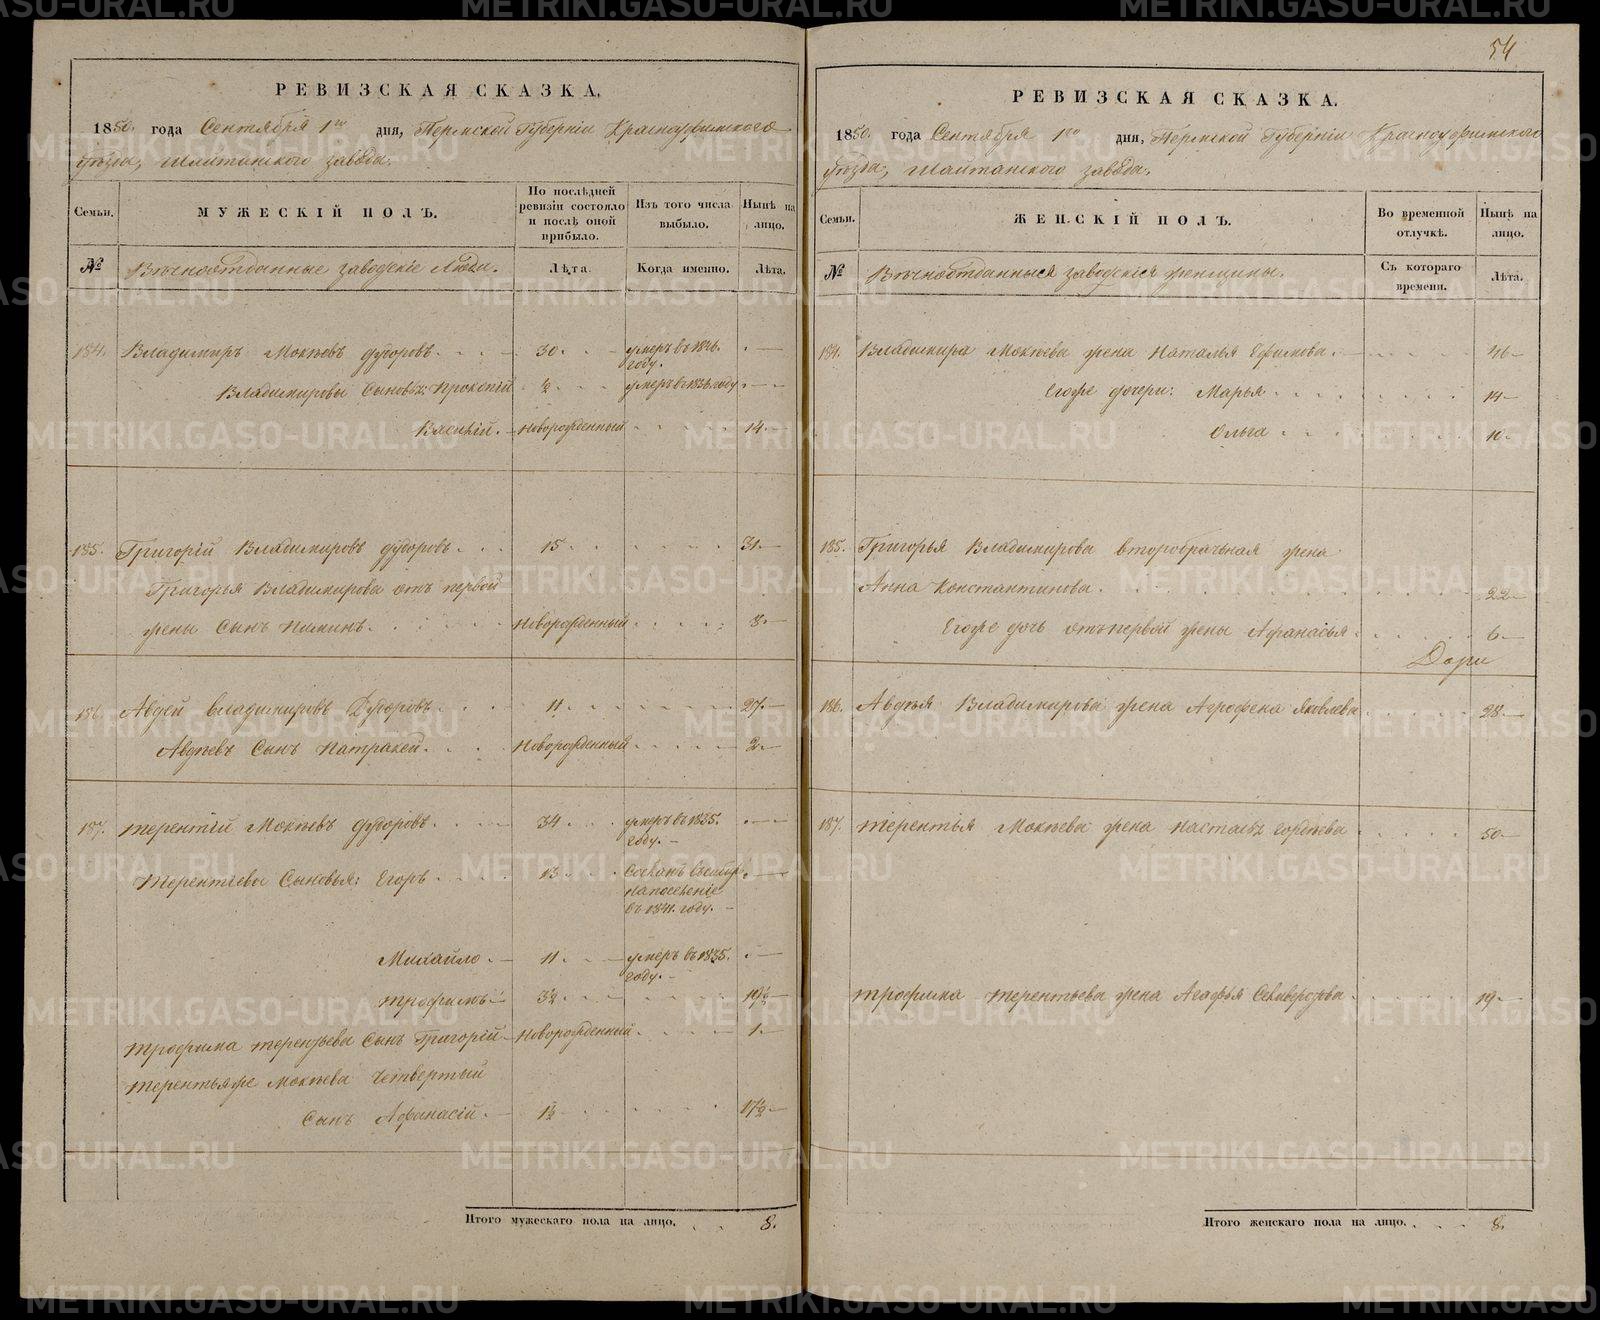 54
РЕВИЗСКАЯ СКАЗКА.
1850. года Сентября 1го дня, Пермской Губерніи Красноуфимского
уѣзда, Шайтанского завода.
Семьи.
МУЖЕСКІЙ ПОЛЪ.
По послѣдней ревизіи состояло и послѣ оной прибыло.
Изъ того числа выбыло.
Нынѣ на лицо.
№
Вѣчноотданные заводскіе Люди.
Лѣта.
Когда именно.
Лѣта.
184. Владимиръ Мокѣевъ Дудоровъ. 30. умеръ въ 1846. году. —
Владимировы Сыновья: Прокопій ½ умеръ въ 1836 году —
Василій. Новорожденный 14.
185. Григорій Владимировъ Дудоровъ. 15. 31.
Григорья Владимирова отъ первой
жены Сынъ Пименъ. Новорожденный 8.
186. Авдей Владимировъ Дудоровъ. 11. 27.
Авдѣевъ Сынъ Патракей. Новорожденный 2.
187. Терентій Мокѣевъ Дудоровъ. 34. умеръ въ 1835. году. —
Терентьева Сыновья: Егоръ. 13. Сосланъ в Сибирь на поселеніе въ 1841. году. —
Михайло. 11. умеръ въ 1835. году. —
Трофимъ 3½ 19½
Трофима Терентьева Сынъ Григорій Новорожденный 1.
Терентья же Мокѣева Четвертый
Сынъ Афанасій. 1½ 17½
Итого мужескаго пола на лицо. 8.
РЕВИЗСКАЯ СКАЗКА.
1850. года Сентября 1го дня, Пермской Губерніи Красноуфимского
уѣзда, Шайтанского завода.
Семьи.
ЖЕНСКІЙ ПОЛЪ.
Во временной отлучкѣ.
Нынѣ на лицо.
№
Вѣчноотданныя заводскія женщины.
Съ котораго времени.
Лѣта.
184. Владимира Мокѣева жена Наталья Ефимова. 46
Его же дочери: Марья 14
Ольга 10.
185. Григорья Владимирова второбрачная жена
Анна Константинова. 22
Его же дочь отъ первой жены Афанасья 6
186. Авдѣя Владимирова жена Агрофена Яковлева 28
187. Терентья Мокѣева жена Настасья Гордѣева 50
Трофима Терентьева жена Агафья Селиверстова 19
Итого женскаго пола на лицо. 8.
METRIKI.GASO-URAL.RU